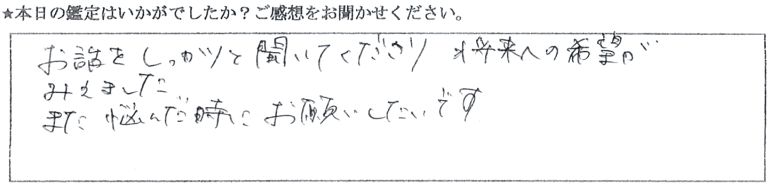 ★本日の鑑定はいかがでしたか？ご感想をお聞かせください。
お話をしっかりと聞いてくださり 将来への希望が
みえました
また悩んだ時にお願いしたいです